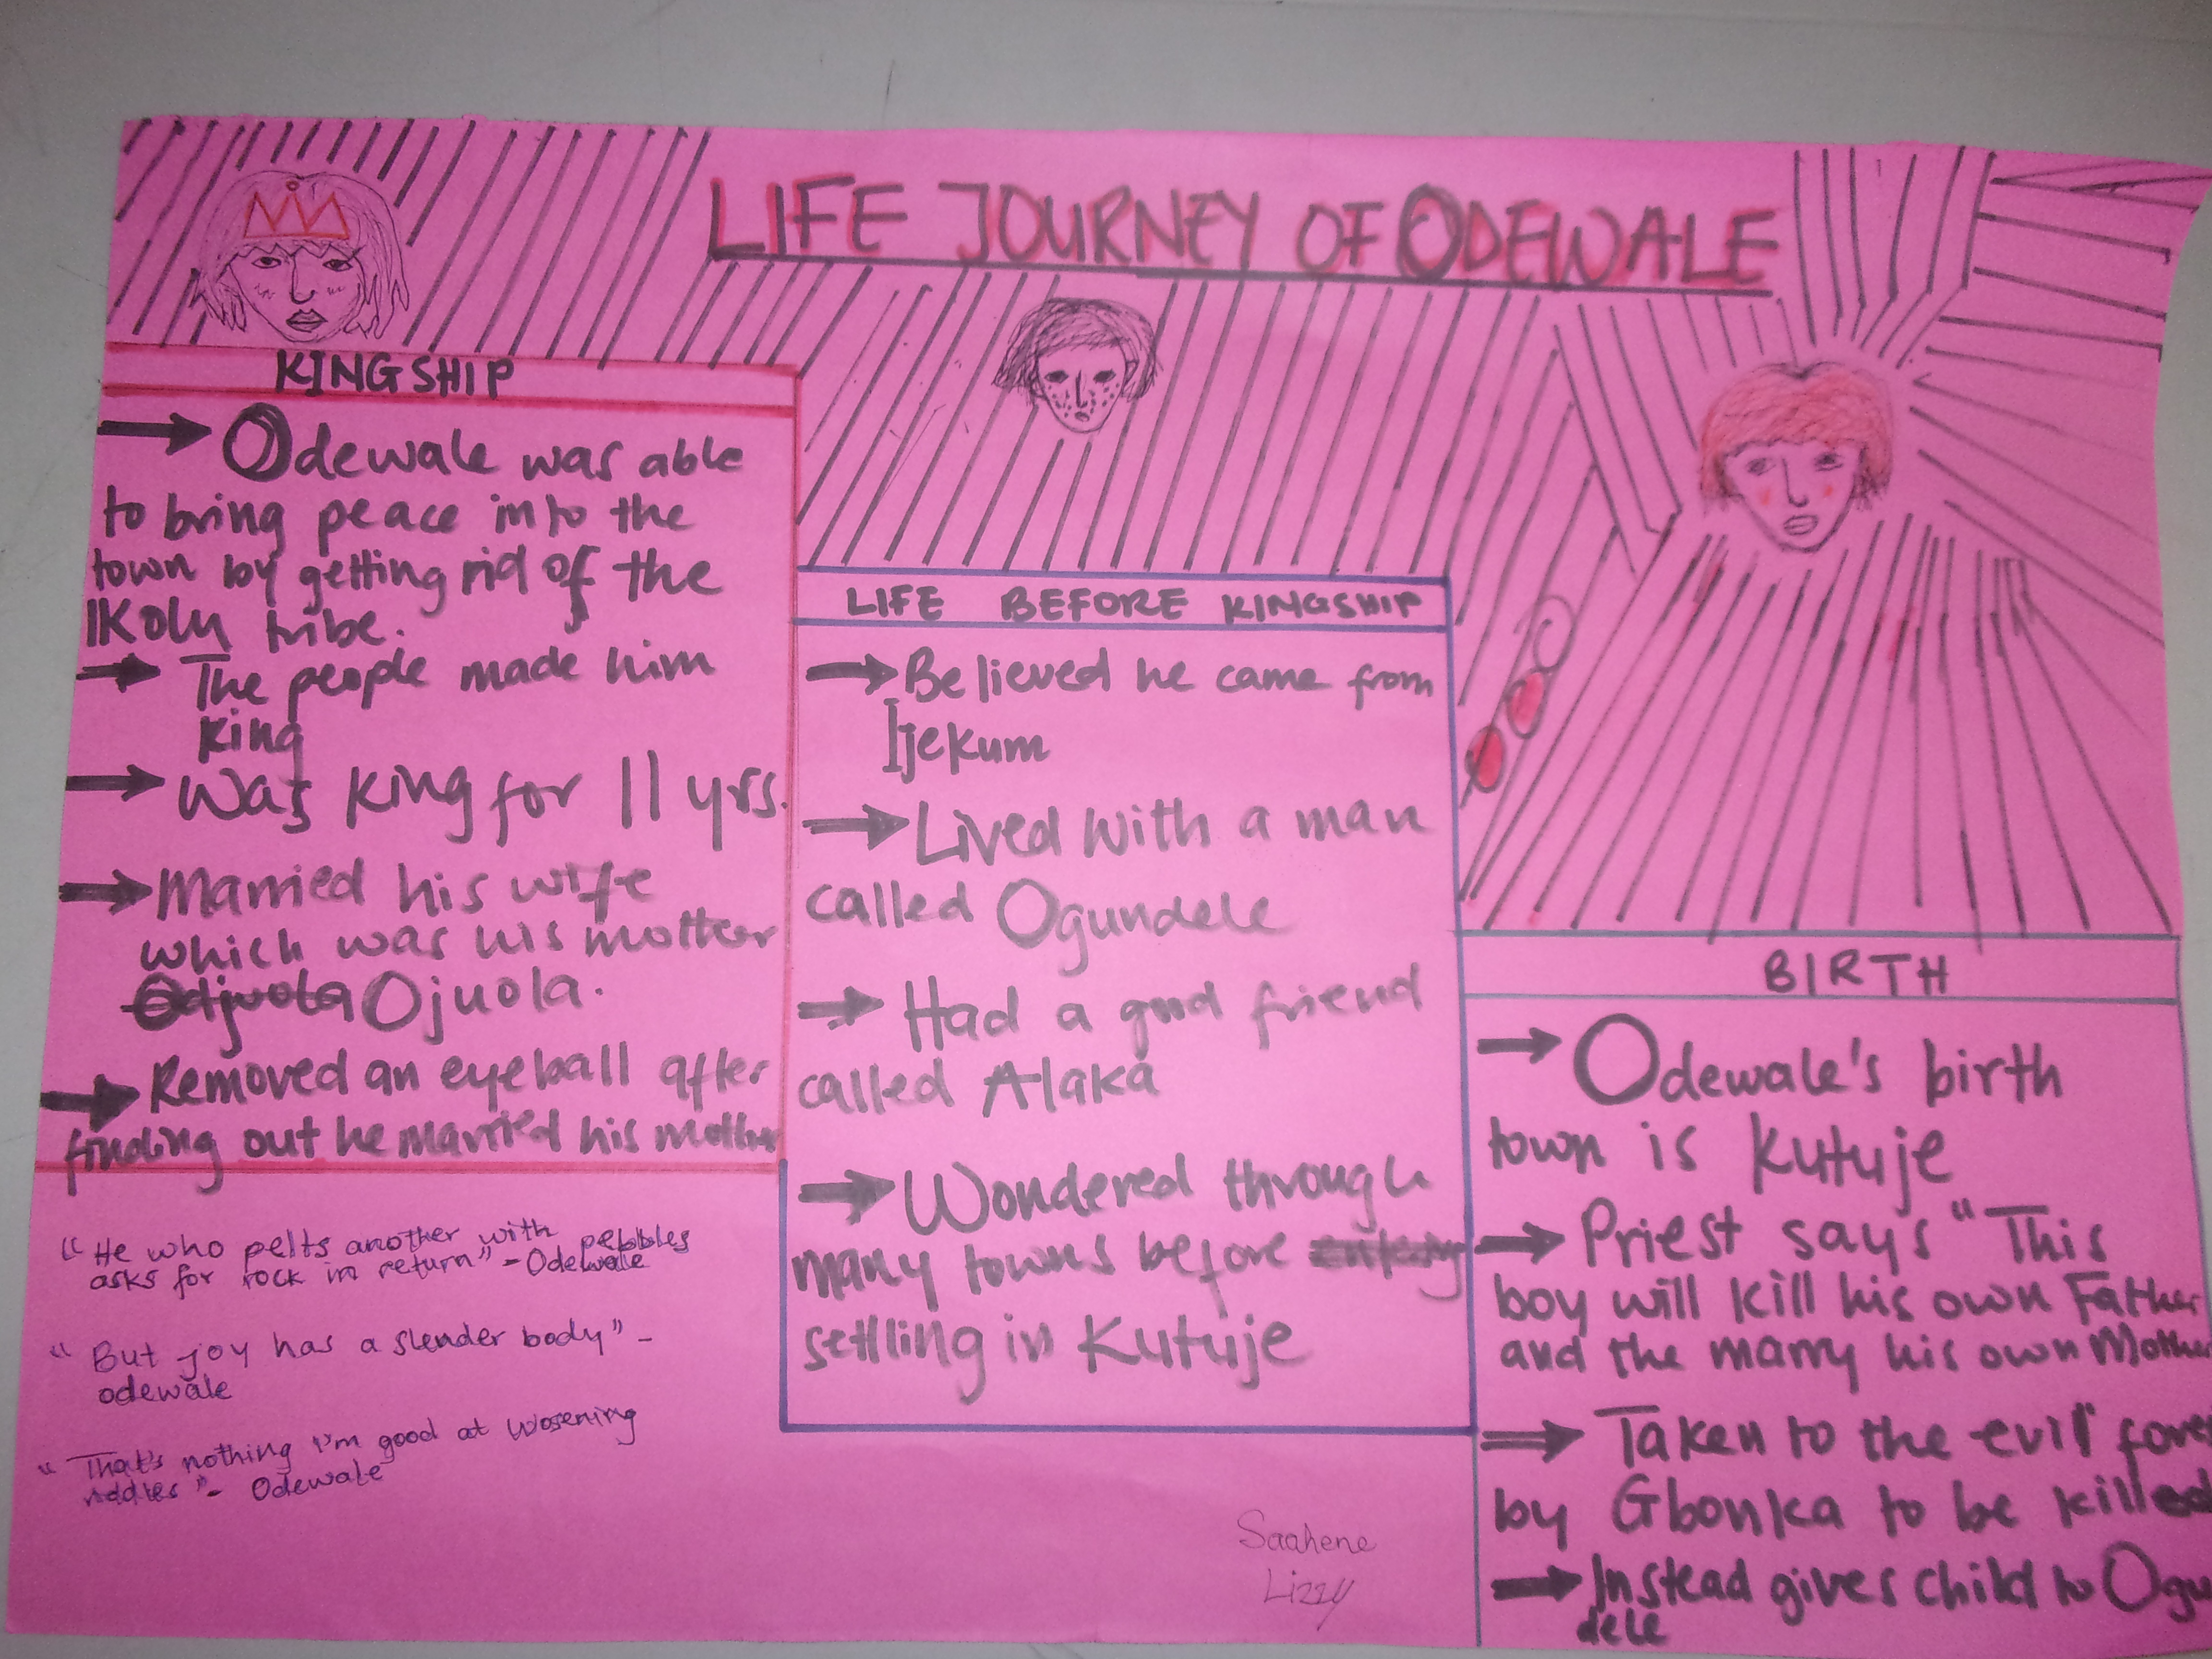 LIFE JOURNEY OF ODEWALE
KINGSHIP
→ Odewale was able
to bring peace into the
town by getting rid of the
IKolu tribe.
→ The people made him
King
→ Was King for 11 yrs.
→ Married his wife
which was his mother
Odjuola Ojuola.
→ Removed an eyeball after
finding out he married his mother
"He who pelts another with pebbles
asks for rock in return" - Odewale
"But joy has a slender body" -
odewale
"That's nothing I'm good at wosening
riddles" - Odewale
LIFE BEFORE KINGSHIP
→ Believed he came from
Ijekum
→ Lived with a man
called Ogundele
→ Had a good friend
called Alaka
→ Wondered through
many towns before
settling in Kutuje
BIRTH
→ Odewale's birth
town is Kutuje
→ Priest says "This
boy will kill his own Father
and the marry his own Mother
→ Taken to the evil fores
by Gbonka to be killed
→ Instead gives child to Ogu
dele
Saahene
Lizzy